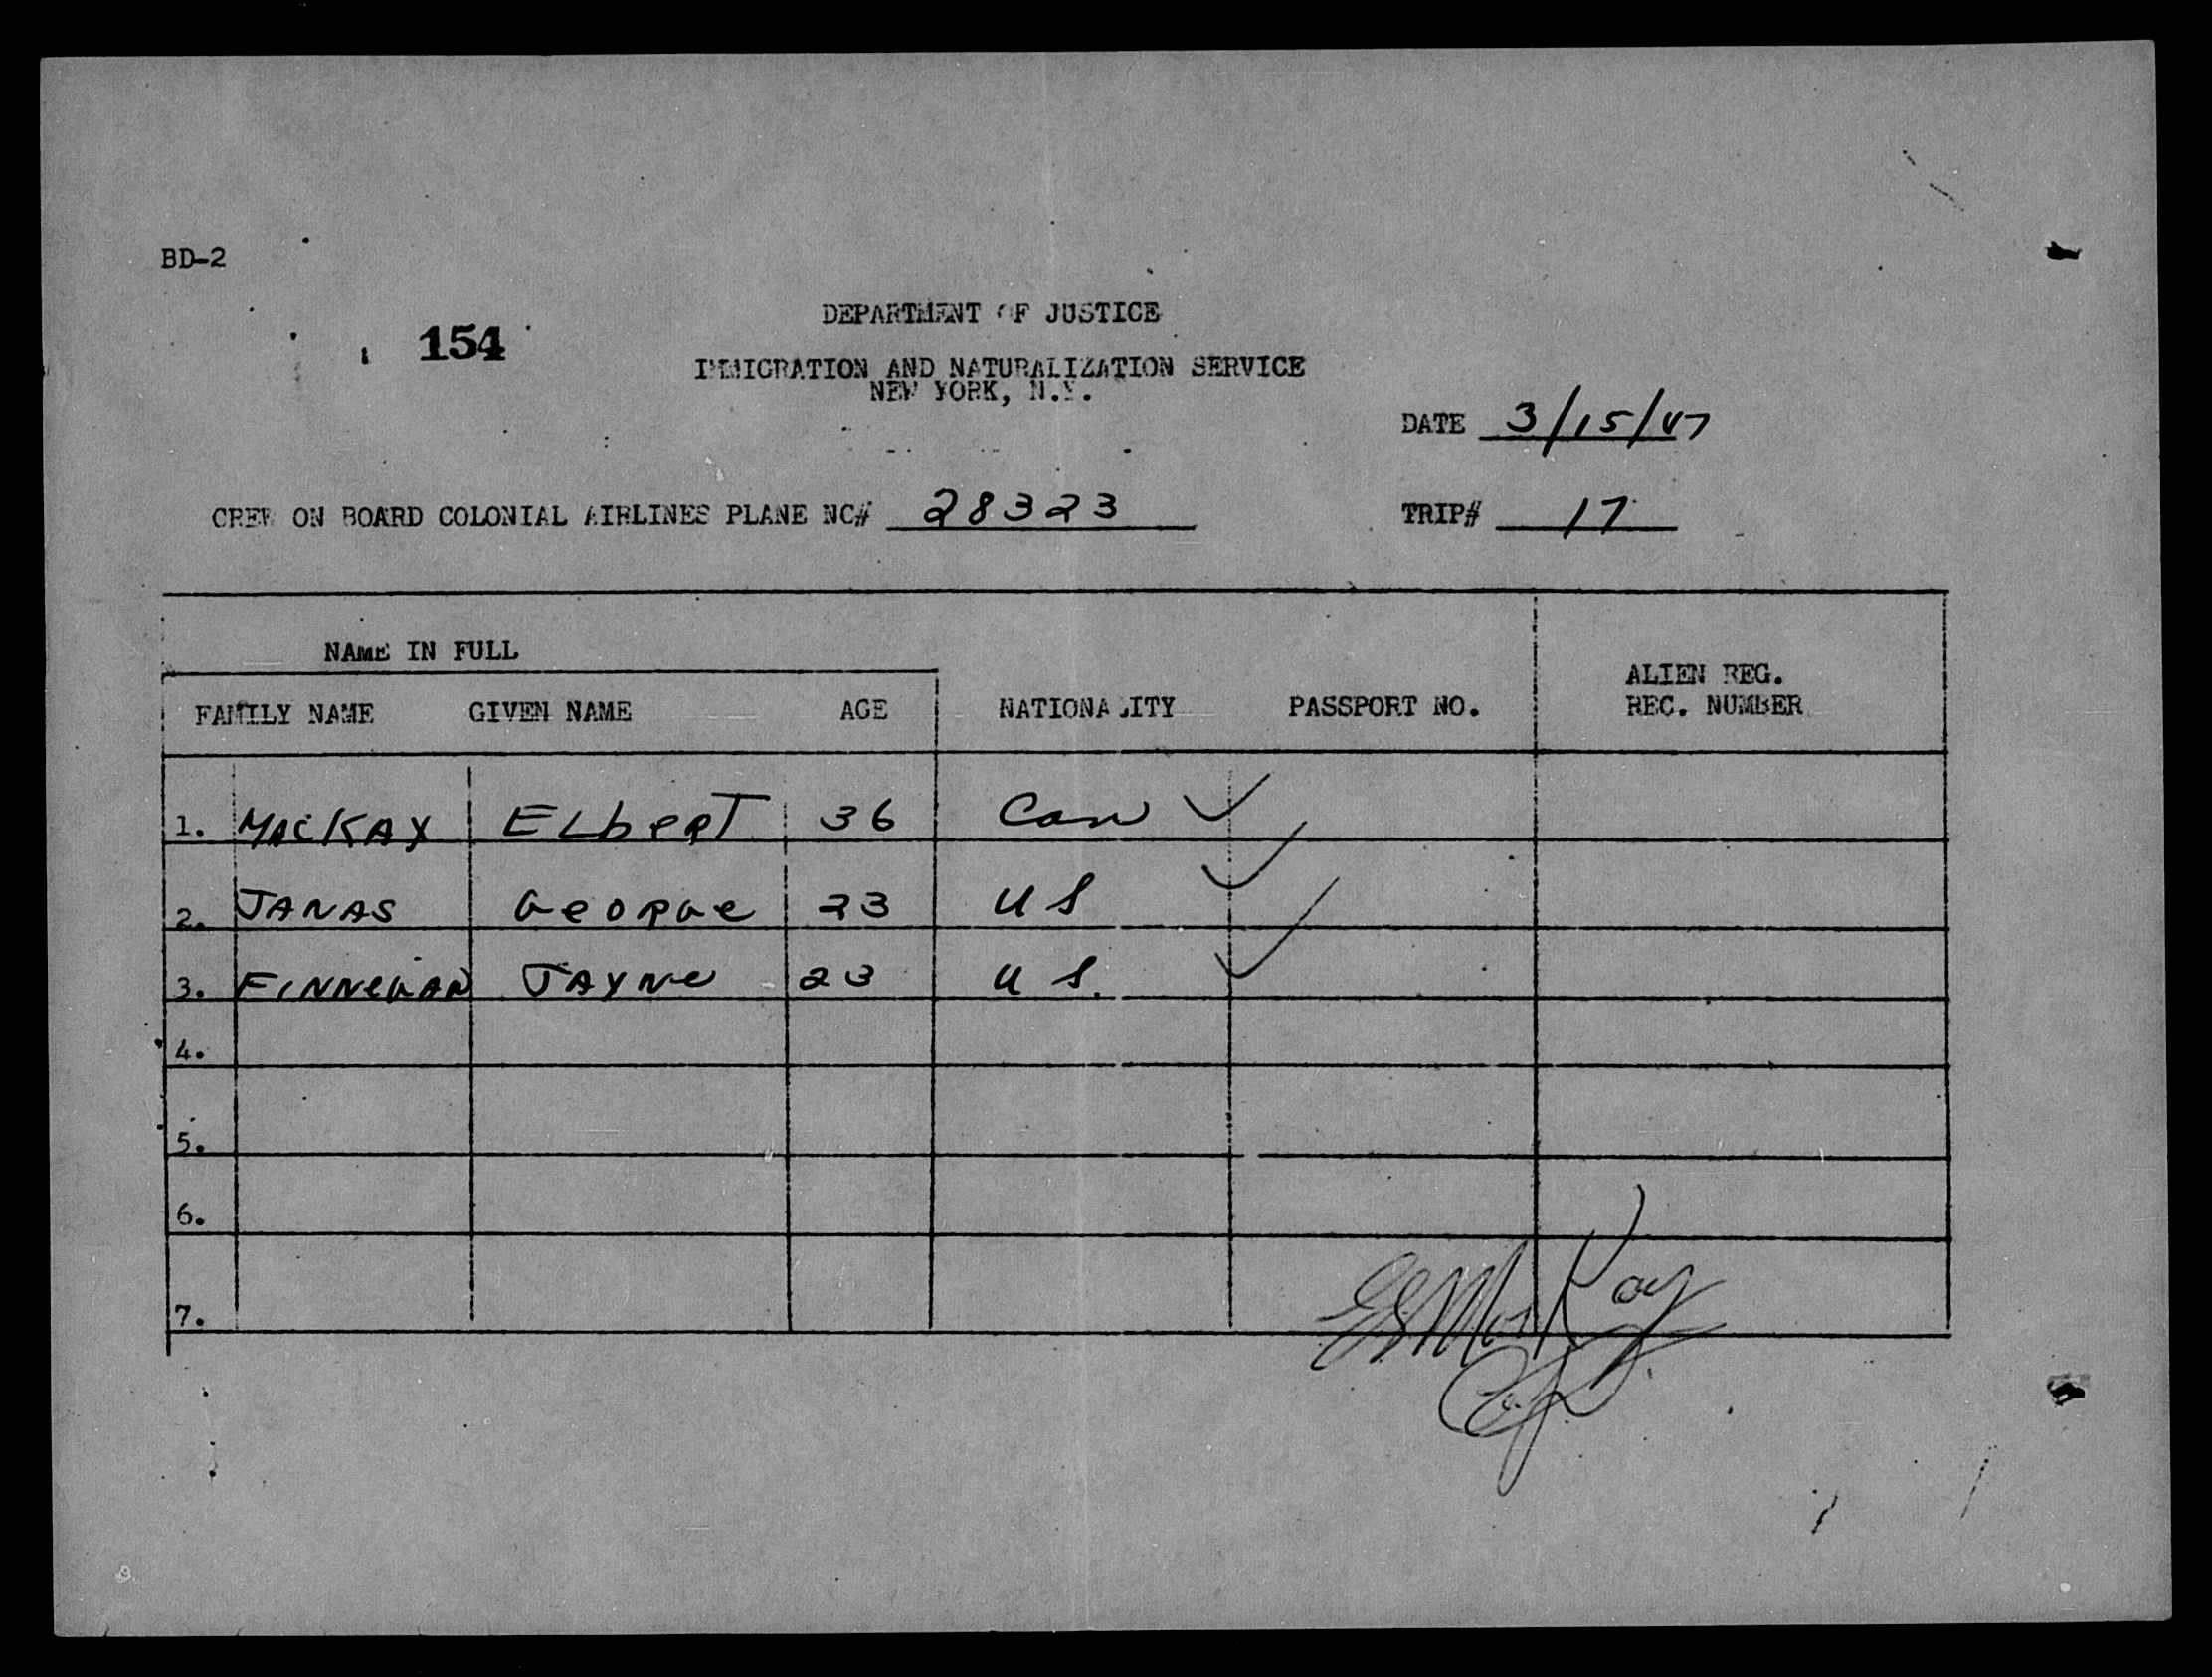 BD-2
154
DEPARTMENT OF JUSTICE
IMMIGRATION AND NATURALIZATION SERVICE
NEW YORK, N.Y.
DATE 3/15/47
CREW ON BOARD COLONIAL AIRLINES PLANE NC# 28323 TRIP# 17
NAME IN FULL
FAMILY NAME GIVEN NAME AGE NATIONALITY PASSPORT NO. ALIEN REG. REC. NUMBER
1. MACKAY ELbERT 36 Can ✓
2. JANAS GeORGe 23 US ✓
3. FINNeGAN JAYNe 23 US. ✓
4.
5.
6.
7.
MacKay